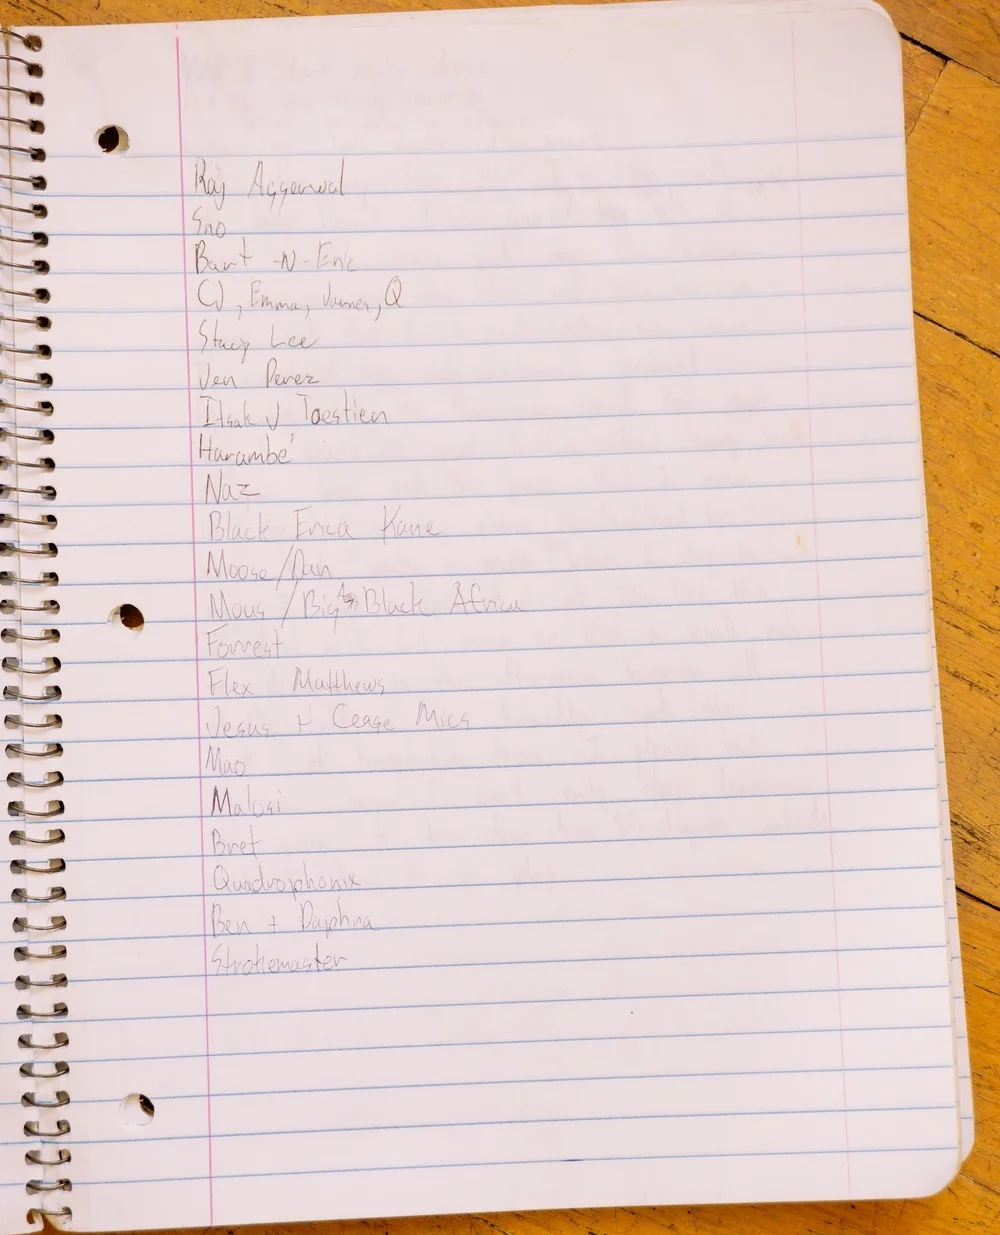 Raj Aggerwal
Sno
Bart -N- Eric
CJ, Emma, James, Q
Stacy Lee
Jen Perez
Itsak J Toestien
Harambé
Naz
Black Erica Kane
Moose/Dan
Mous / Big Ass Black Africa
Forrest
Flex Matthews
Jesus + Cease Mics
Mao
Malosi
Bret
Quadrophonix
Ben + Daphna
Strokemaster